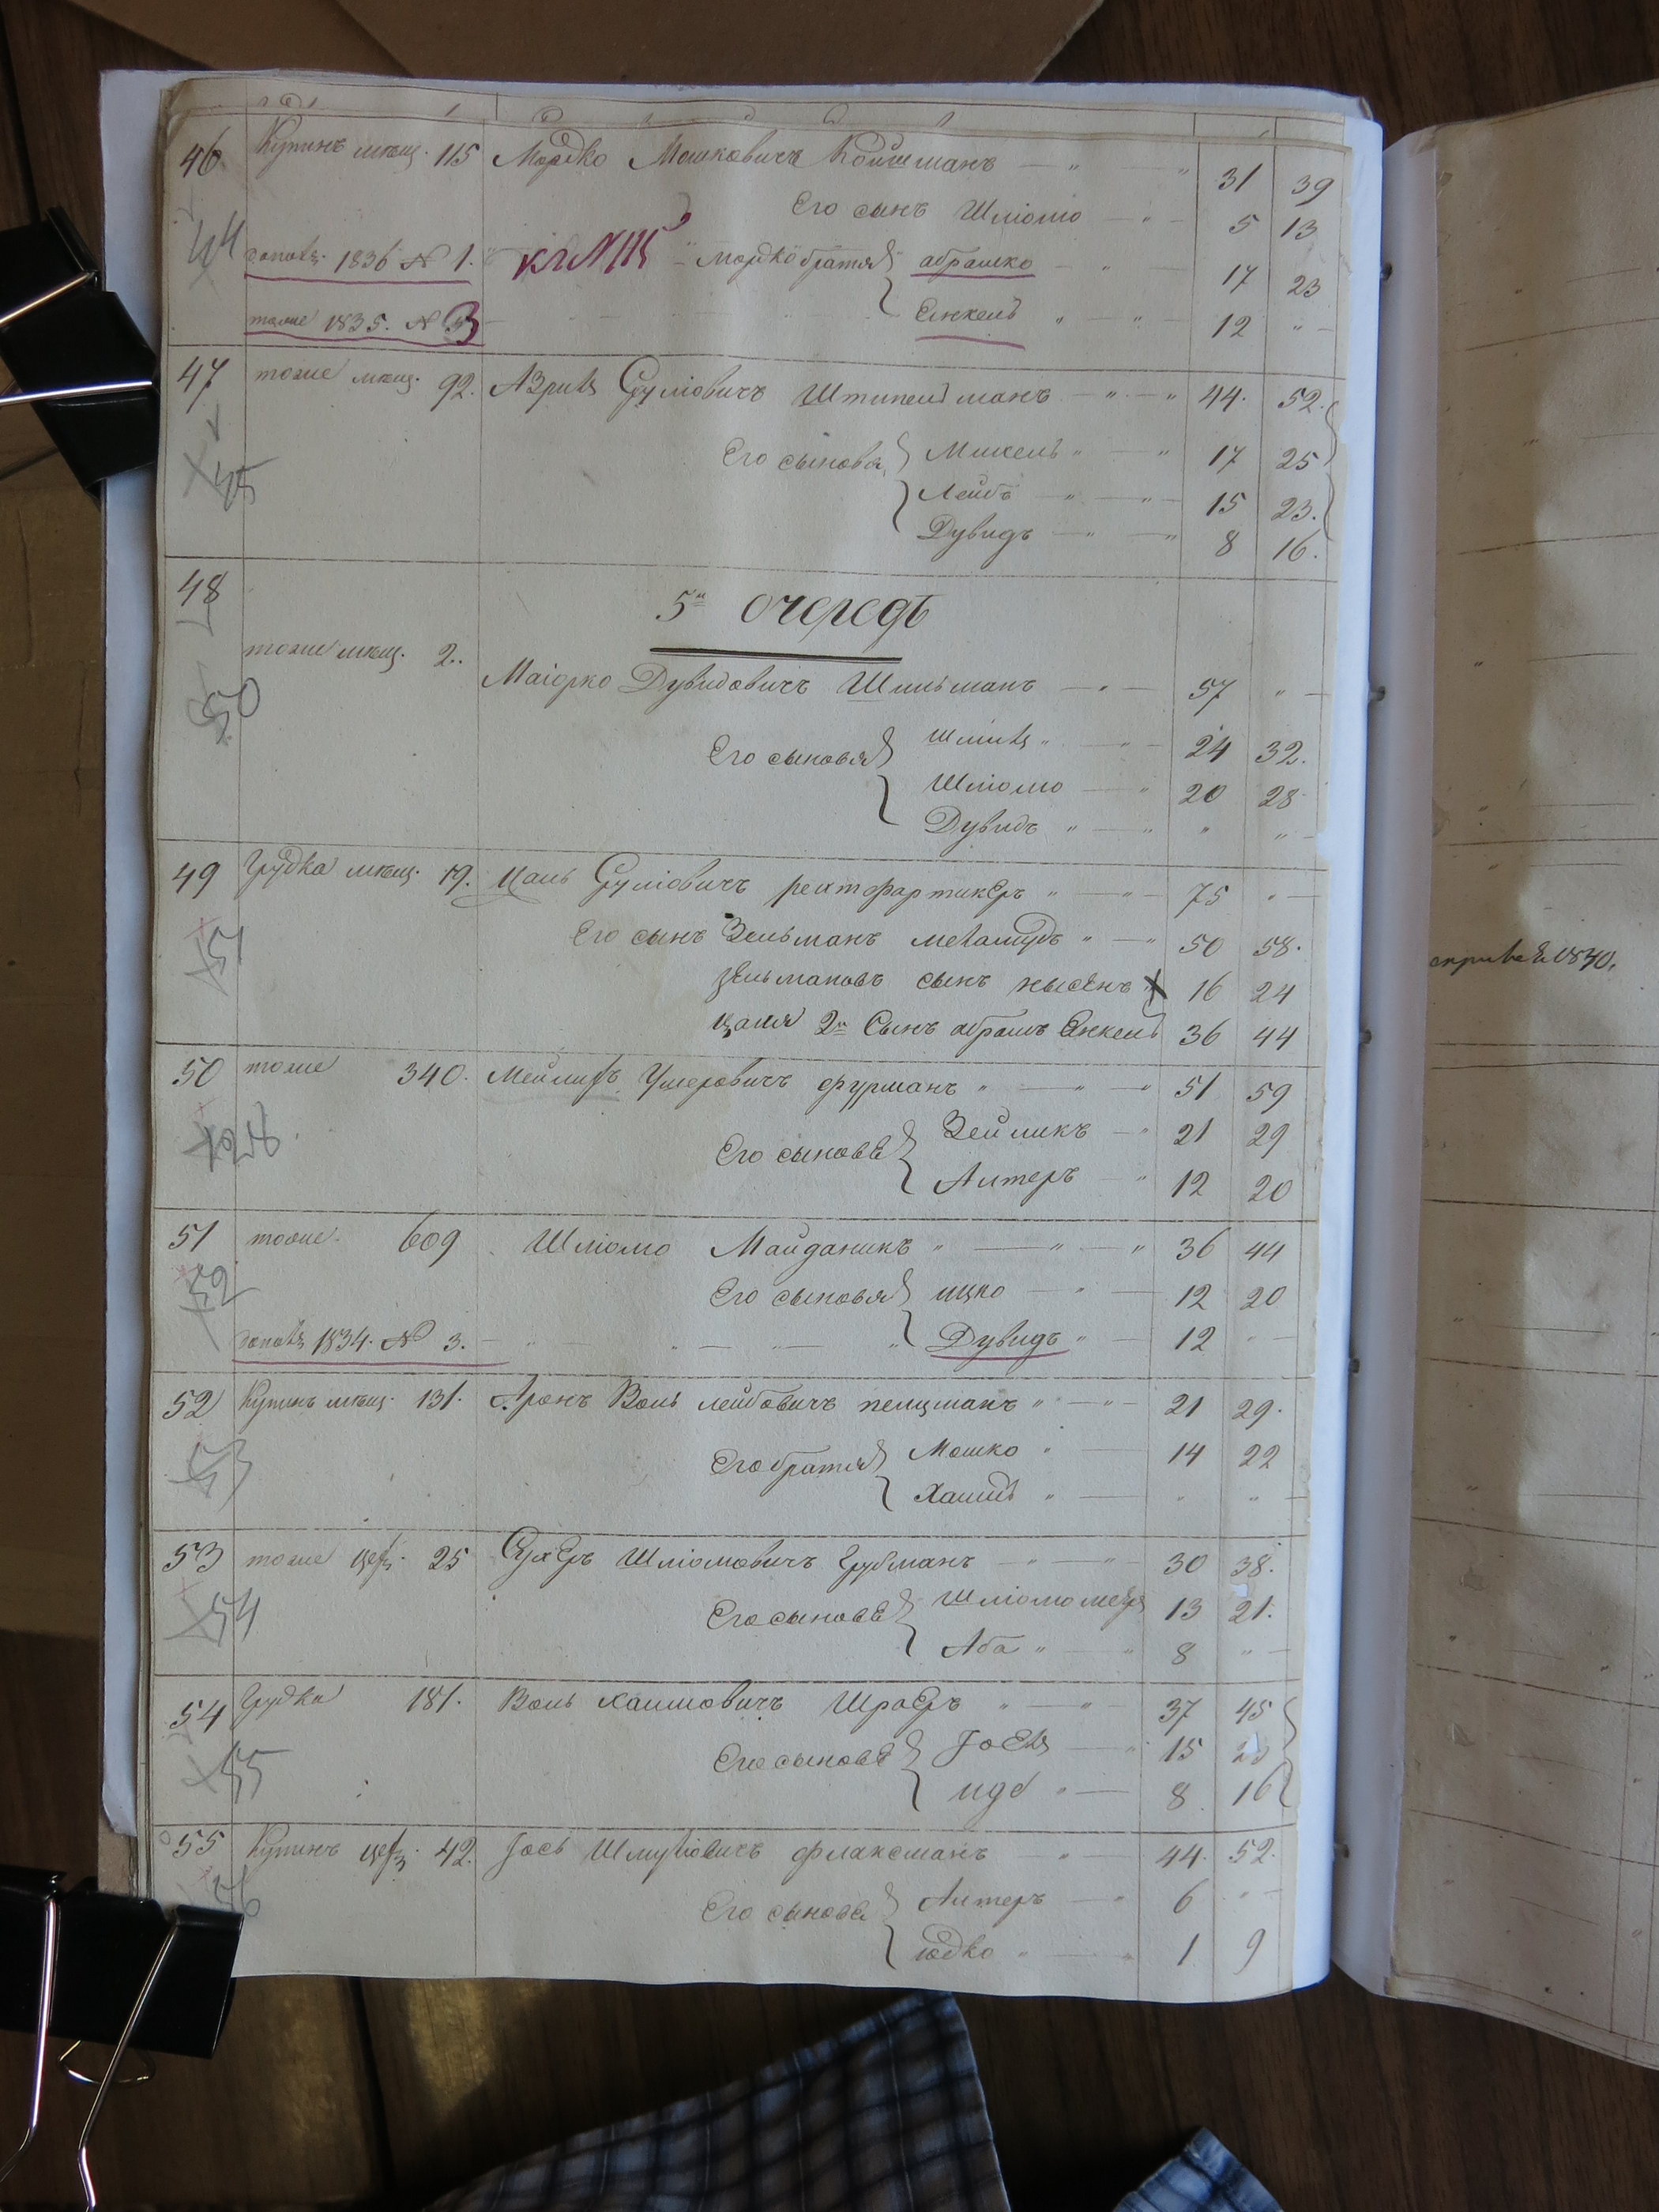 46 Купинъ мѣщ. 115 Мордко Мошковичъ Ройтманъ — " — " 31 39
Его сынъ Шліомо — " — 5 13
44 1836 № 1. " мордко братья абрамко — " — 17 23
тоже 1835. № 3 — Енкель " — " — 12 " —
47 тоже мѣщ. 92. Азриль Сруліовичъ Штипельманъ — " — " 44. 52.
Его сыновья Михель " — " 17 25
45 Лейбъ — " — " — 15 23.
Дувидъ — " — " 8 16.
48
5я очередь
тоже мѣщ. 2.
50 Маіорко Дувидовичъ Шпильманъ — " — 57 " —
Его сыновья Шмиль " — " — 24 32.
Шліомо — " 20 28
Дувидъ " — " " " —
49 Грудка мѣщ. 19. Цаль Сруліовичъ " — " — 75 " —
51 Его сынъ Зельманъ меламудъ " — " 50 58.
Зельмановъ сынъ нысенъ " 16 24
цаля 2й Сынъ абрамъ Енкель 36 44
50 тоже 340. Мейлихъ Ушеровичъ фурманъ " — " — " 51 59
Его сыновье Зейликъ — " 21 29
Алтеръ — " 12 20
51 тоже 609 Шліомо Майданикъ " — " — " 36 44
52 Его сыновья ицко — " — 12 20
1834. № 3. — " — " — " — " Дувидъ " — 12 " —
52 Купинъ мѣщ. 131. Аронъ Воль лейбовичъ пелцманъ " — " — 21 29.
53 Его братья Мошко " — 14 22
Хаимъ " — " " —
53 тоже 25 Сухеръ Шліомовичъ Грубманъ — " — " — 30 38.
54 Его сыновье Шліомо 13 21.
Аба " — " 8 " —
54 Грудка 181. Воль хаимовичъ Шраеръ " — " 37 45
55 Его сыновье Іоель — " 15
идъ " — 8 16
55 Купинъ 42. Іось Шмуліовичъ флаксманъ — " — 44. 52.
56 Его сыновье Алтеръ — " 6 " —
юдко " — " 1 9